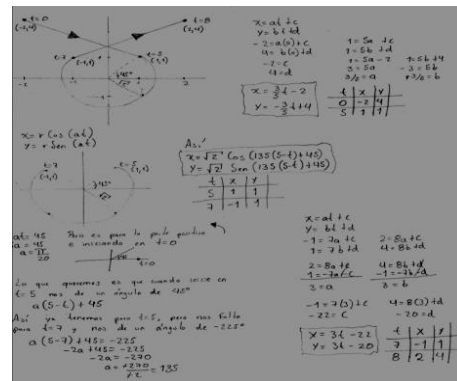 t=0
(-2,4)
t=8
(2,4)
t=7
(-1,1)
t=5
(1,1)
45°
√2
-2
-1
1
2
x = at + c
y = bt + d
-2 = a(0) + c
4 = b(0) + d
-2 = c
4 = d
1 = 5a + c
1 = 5b + d
1 = 5a - 2
3 = 5a
3/5 = a
1 = 5b + 4
-3 = 5b
-3/5 = b
x = 3/5 t - 2
y = -3/5 t + 4
t x y
0 -2 4
5 1 1
x = r Cos (at)
y = r Sen (at)
t=7
(-1,1)
t=5
(1,1)
45°
Así
x = √2 Cos (135(5-t)+45)
y = √2 Sen (135(5-t)+45)
t x y
5 1 1
7 -1 1
at = 45
a = 45
a = π/20
Pero es para la parte positiva
e iniciando en t=0
t=0
Lo que queremos es que cuando inicie en
t = 5 nos de un ángulo de 45°
a(5-t) + 45
Así ya tenemos para t=5, pero nos falta
para t=7 y nos da un ángulo de -225°
a(5-7) + 45 = -225
-2a + 45 = -225
-2a = -270
a = +270/+2 = 135
x = at + c
y = bt + d
-1 = 7a + c
1 = 7b + d
2 = 8a + c
4 = 8b + d
2 = 8a + c
1 = -7a - c
3 = a
4 = 8b + d
-1 = -7b - d
3 = b
-1 = 7(3) + c
-22 = c
4 = 8(3) + d
-20 = d
x = 3t - 22
y = 3t - 20
t x y
7 -1 1
8 2 4